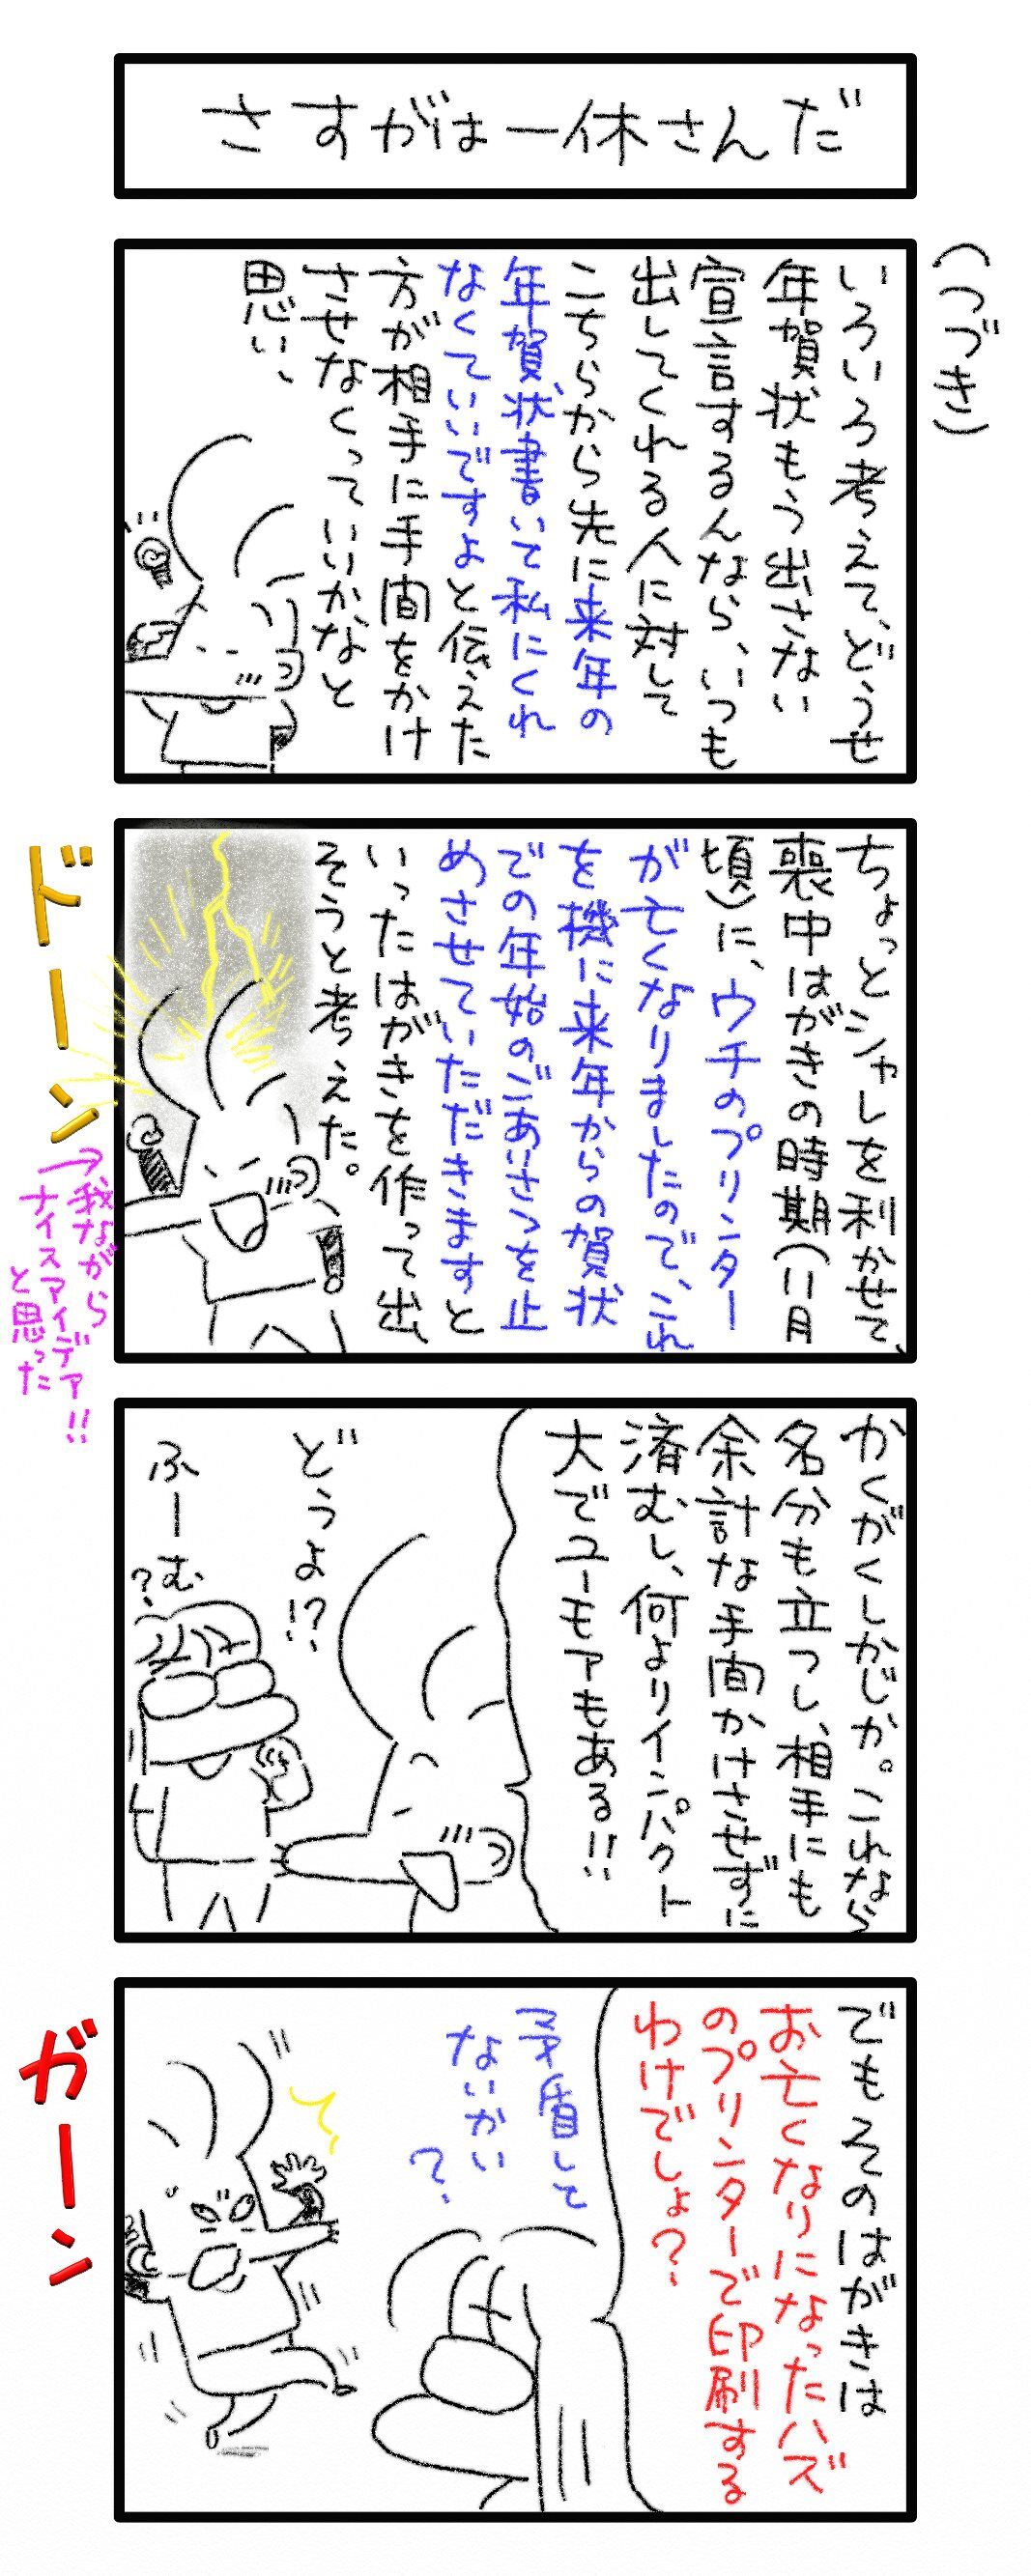 さすがは一休さんだ
(つづき)
いろいろ考えて、どうせ
年賀状もう出さない
宣言するんなら、いつも
出してくれる人に対して
こちらから先に来年の
年賀状書いて私にくれ
なくていいですよと伝えた
方が相手に手間をかけ
させなくっていいかなと
思い、
ちょっとシャレを利かせて、
喪中はがきの時期(11月
頃)に、ウチのプリンター
が亡くなりましたので、これ
を機に来年からの賀状
での年始のごあいさつを止
めさせていただきますと
いったはがきを作って出
そうと考えた。
ドーン
→我ながら
ナイスアイデア!!
と思った
かくがくしかじか。これなら
名分も立つし、相手にも
余計な手間かけさせずに
済むし、何よりインパクト
大でユーモアもある!!
どうよ!?
ふーむ
?
でもそのはがきは
お亡くなりになったハズ
のプリンターで印刷する
わけでしょ?
矛盾して
ないかい
?
ガーン